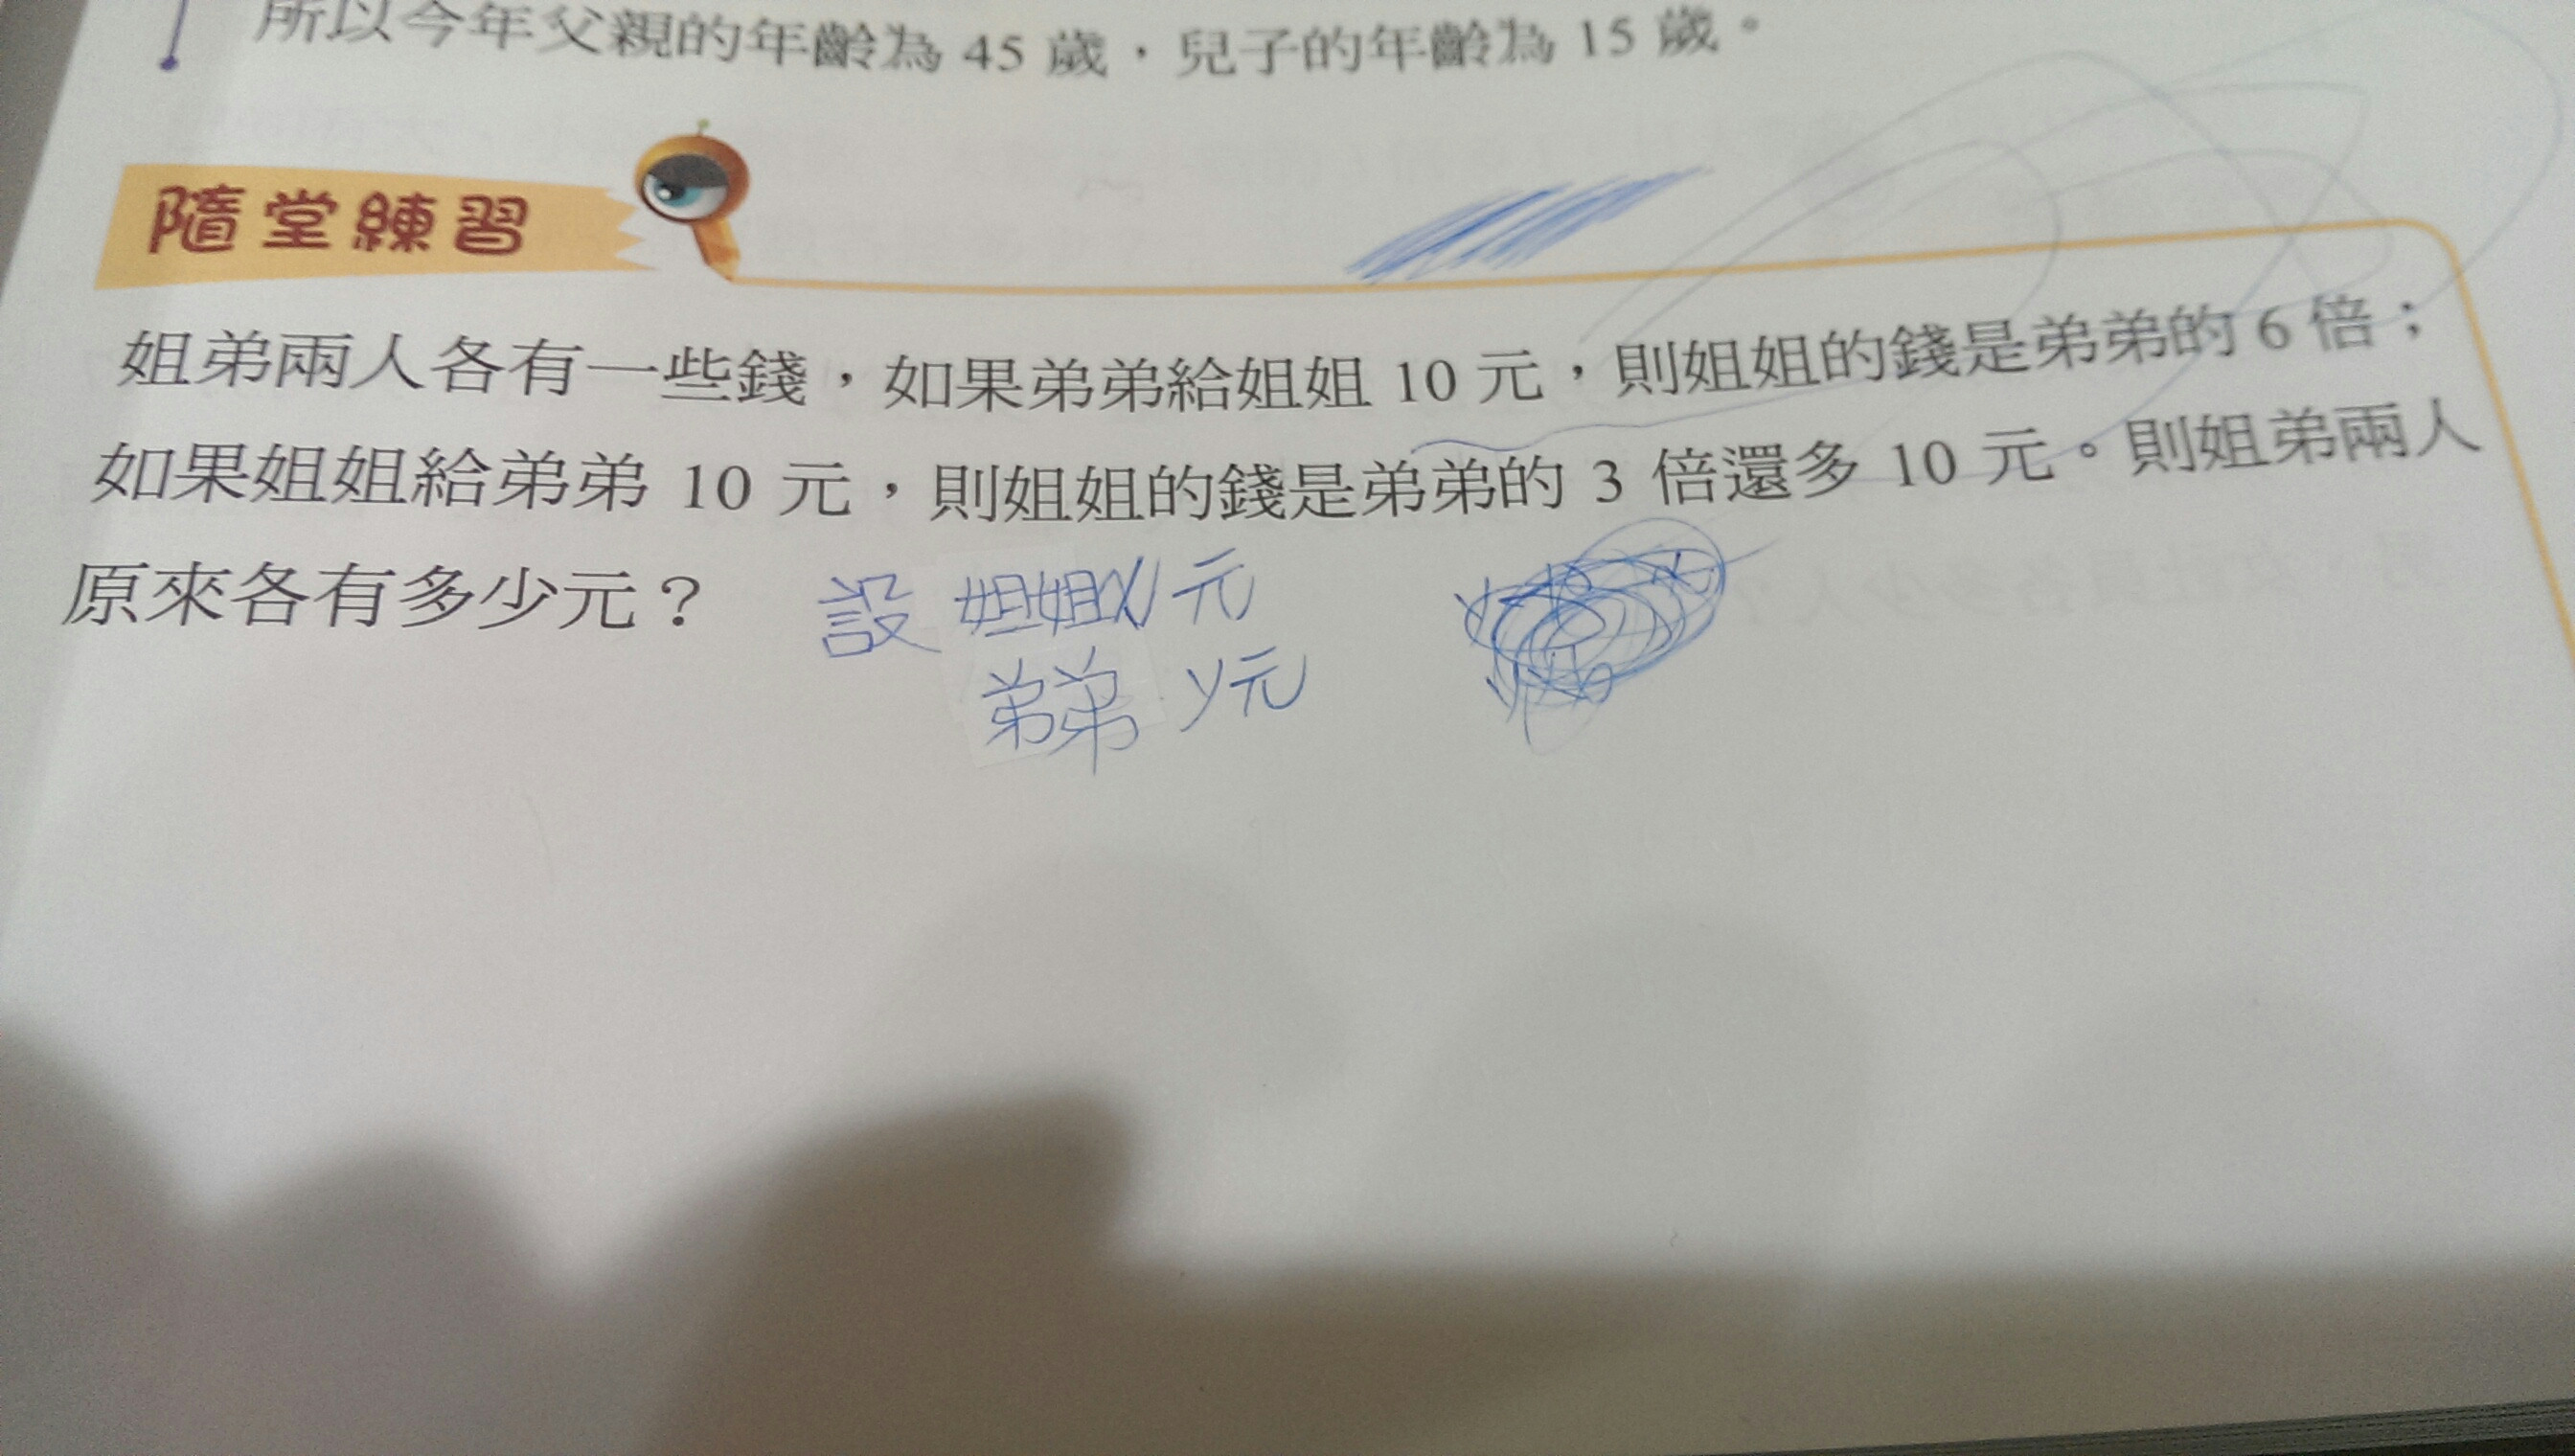 所以今年父親的年齡為 45 歲，兒子的年齡為 15 歲。
隨堂練習
姐弟兩人各有一些錢，如果弟弟給姐姐 10 元，則姐姐的錢是弟弟的 6 倍；
如果姐姐給弟弟 10 元，則姐姐的錢是弟弟的 3 倍還多 10 元。則姐弟兩人
原來各有多少元？
設 姐姐 x 元
弟弟 y 元